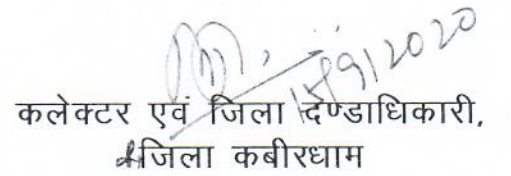 15/9/2020
कलेक्टर एवं जिला दण्डाधिकारी,
जिला कबीरधाम